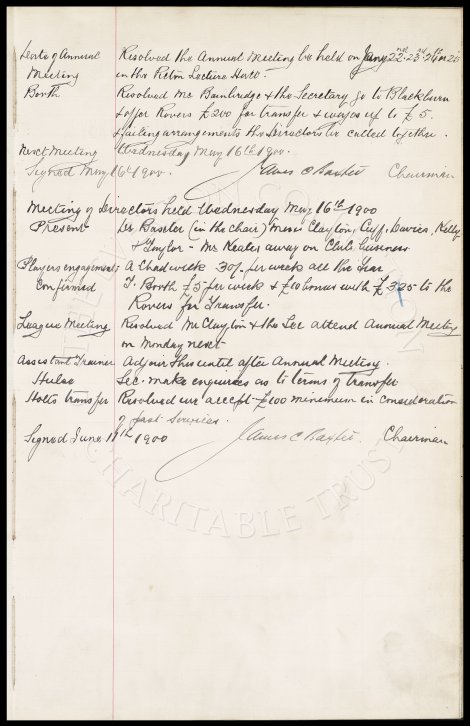 Date of Annual Resolved the Annual Meeting be held on Jany 22nd 23rd 24th or 25
Meeting in the Picton Lecture Hall.
Booth Resolved Mr Bainbridge & the Secretary go to Blackburn
& offer Rovers £200 for transfer & wages up to £5.
Failing arrangements the Directors be called together.
Next Meeting Wednesday May 16th 1900.
Signed May 16th 1900. James C Baxter Chairman
Meeting of Directors held Wednesday May 16th 1900
Present Dr Baxter (in the chair) Messrs Clayton, Cuff, Davies, Kelly
& Taylor - Mr Keates away on Club business
Players engagements A Chadwick 30/- per week all the Year
Confirmed T. Booth £5 per week & £10 bonus with £325 to the
Rovers for Transfer.
League Meeting Resolved Mr Clayton & the Sec attend Annual Meeting
on Monday next
Assistant Trainer Adjourn this until after Annual Meeting.
Hulse Sec. make enquiries as to terms of transfer
Holts transfer Resolved we accept £100 minimum in consideration
of past services.
Signed June 11th 1900 James C Baxter Chairman
CHARITABLE TRUST